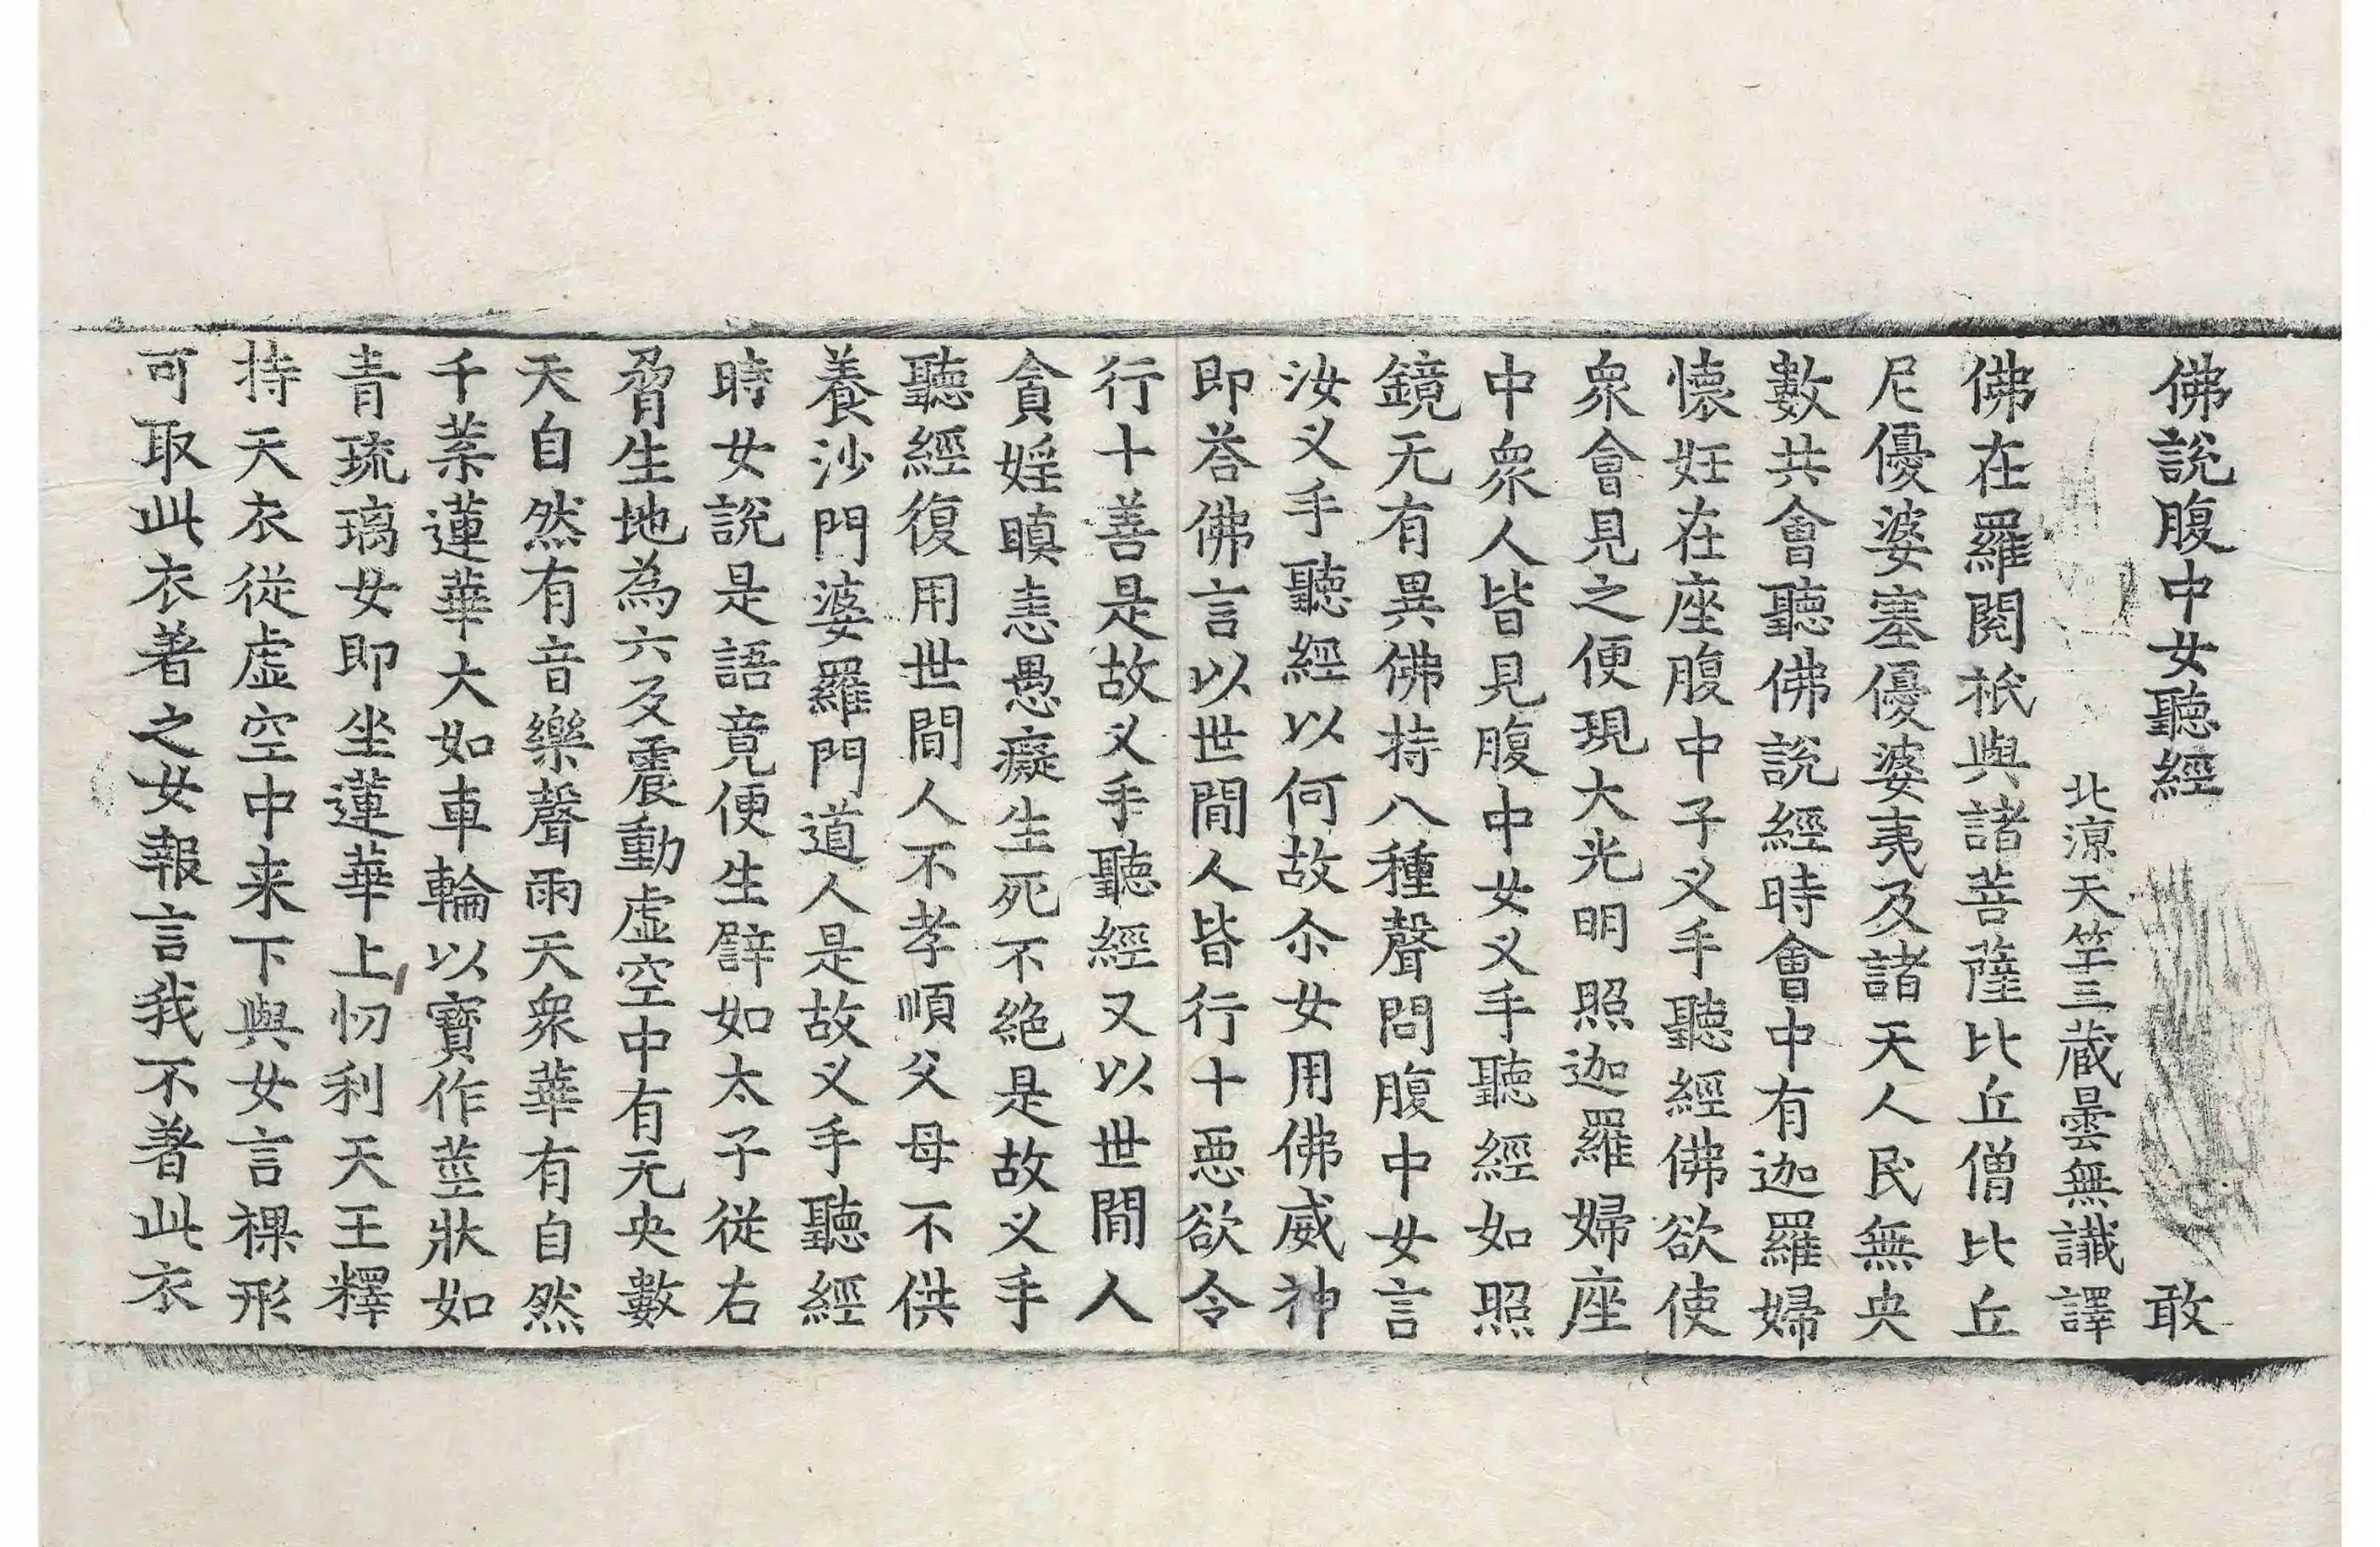 佛說腹中女聽經 敢
北涼天竺三藏曇無讖譯
佛在羅閱祇與諸菩薩比丘僧比丘
尼優婆塞優婆夷及諸天人民無央
數共會聽佛說經時會中有迦羅婦
懷妊在座腹中子义手聽經佛欲使
衆會見之便現大光明照迦羅婦座
中衆人皆見腹中女义手聽經如照
鏡无有異佛持八種聲問腹中女言
汝义手聽經以何故尒女用佛威神
即荅佛言以世間人皆行十惡欲令
行十善是故义手聽經又以世間人
貪婬瞋恚愚癡生死不絕是故义手
聽經復用世間人不孝順父母不供
養沙門婆羅門道人是故义手聽經
時女說是語竟便生辟如太子從右
脅生地為六反震動虛空中有无央數
天自然有音樂聲雨天衆華有自然
千葉蓮華大如車輪以寶作莖狀如
青琉璃女即坐蓮華上忉利天王釋
持天衣從虛空中来下與女言裸形
可取此衣著之女報言我不著此衣